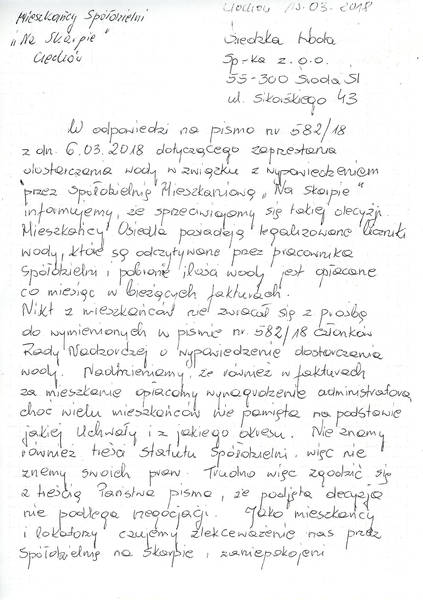 Mieszkańcy Spółdzielni
Ciechów 13.03.2018
"Na Skarpie"
Ciechów
Średzka Woda
Sp-ka z.o.o.
55-300 Środa Śl
ul. Sikorskiego 43
W odpowiedzi na pismo nr 582/18
z dn. 6.03.2018 dotyczącego zaprzestania
dostarczania wody w związku z wypowiedzeniem
przez Spółdzielnię Mieszkaniową "Na Skarpie"
informujemy, że sprzeciwiamy się takiej decyzji.
Mieszkańcy Osiedla posiadają legalizowane liczniki
wody, które są odczytywane przez pracownika
Spółdzielni i pobrana ilość wody jest opłacane
co miesiąc w bieżących fakturach.
Nikt z mieszkańców nie zwracał się z prośbą
do wymienionych w piśmie nr. 582/18 członków
Rady Nadzorczej o wypowiedzenie dostarczania
wody. Nadmieniamy, że również w fakturach
za mieszkanie opłacamy wynagrodzenie administratora,
choc wielu mieszkańców nie pamięta na podstawie
jakiej Uchwały i z jakiego okresu. Nie znamy
również treści Statutu Spółdzielni, więc nie
znamy swoich praw. Trudno więc zgodzić się
z treścią Państwa pisma, że podjęta decyzja
nie podlega negocjacji. Jako mieszkańcy
i lokatorzy czujemy zlekceważenie nas przez
Spółdzielnię na Skarpie, zaniepokojeni